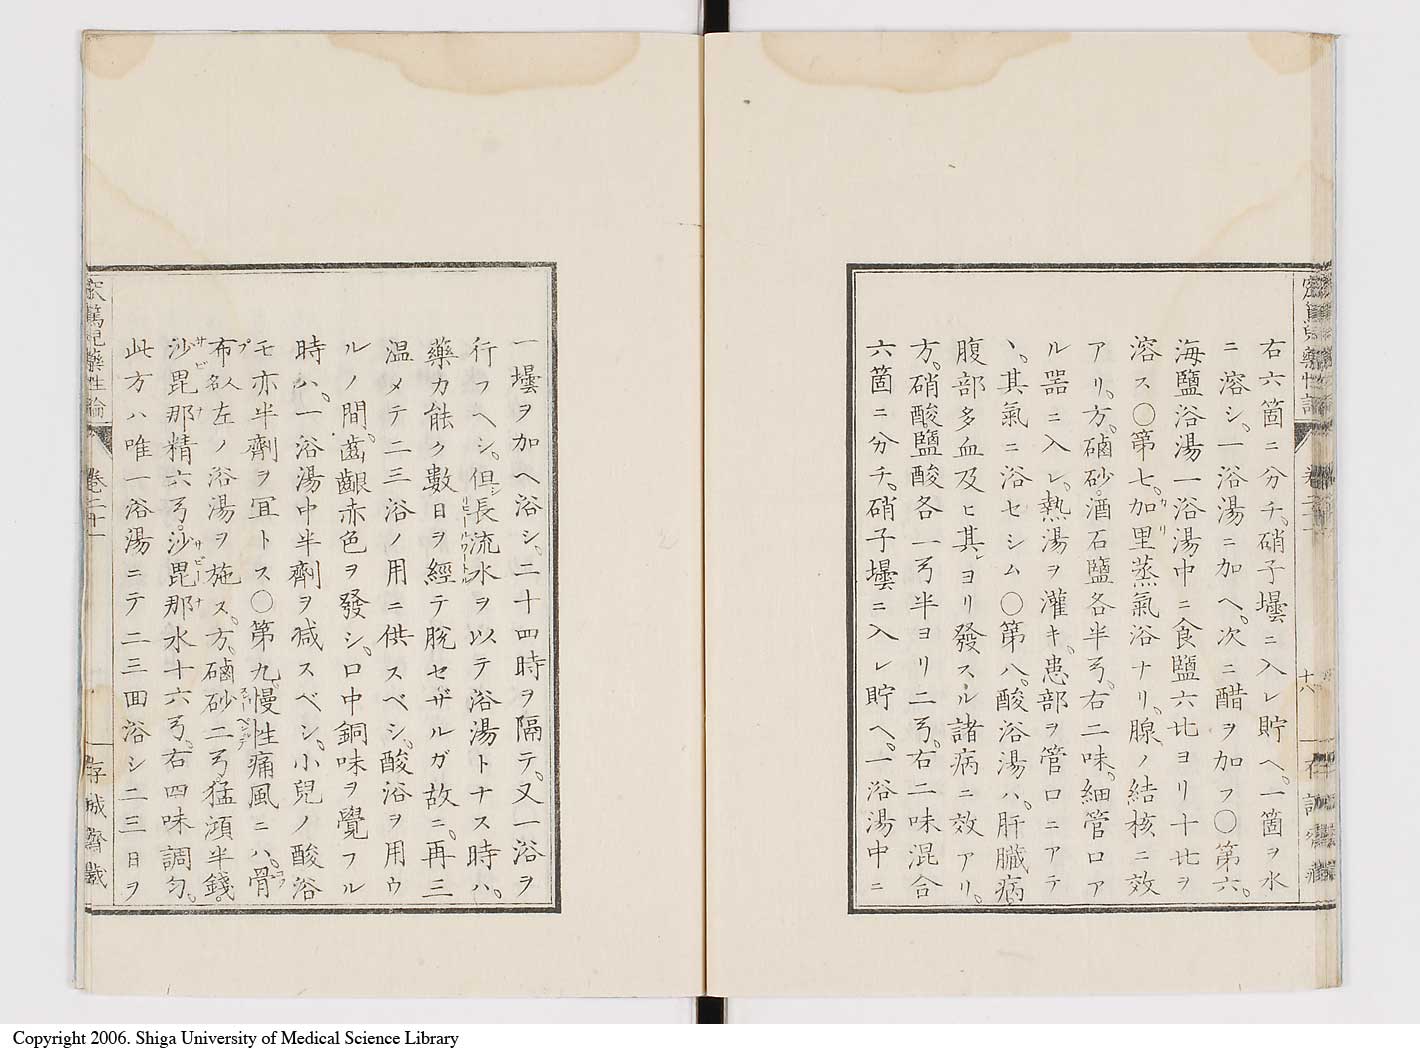 右六箇ニ分チ、硝子壜ニ入レ貯ヘ、一箇ヲ水
ニ溶シ、一浴湯ニ加ヘ、次ニ醋ヲ加フ〇第六、
海鹽浴湯一浴湯中ニ食鹽六㪷ヨリ十㪷ヲ
溶ス〇第七、加里蒸氣浴ナリ、腺ノ結核ニ效
アリ、方、磠砂、酒石鹽各半弓、右二味、細管口ア
ル噐ニ入レ、熱湯ヲ灌キ、患部ヲ管口ニアテ
丶、其氣ニ浴セシム〇第八、酸浴湯ハ、肝臓病、
腹部多血及ヒ其レヨリ發スル諸病ニ效アリ、
方、硝酸鹽酸各一弓半ヨリ二弓、右二味混合
六箇ニ分チ、硝子壜ニ入レ貯ヘ、一浴湯中ニ
十八
一壜ヲ加ヘ浴シ、二十四時ヲ隔テ、又一浴ヲ
行フヘシ、但シ長流水ヲ以テ浴湯トナス時ハ、
藥力能ク數日ヲ經テ脫セザルガ故ニ、再三
温メテ二三浴ノ用ニ供スベシ、酸浴ヲ用ウ
ルノ間、齒齦赤色ヲ發シ、口中銅味ヲ覺フル
時ハ、一浴湯中半劑ヲ減スベシ、小兒ノ酸浴
モ亦半劑ヲ冝トス〇第九、慢性痛風ニハ、骨
布欽左ノ浴湯ヲ施ス、方、磠砂二弓、猛澒半錢、
沙毘那精六弓、沙毘那水十六弓、右四味調勻、
此方ハ唯一浴湯ニテ二三回浴シ二三日ヲ
窊篤児藥性論
卷二十一
存誠齋藏
Copyright 2006. Shiga University of Medical Science Library